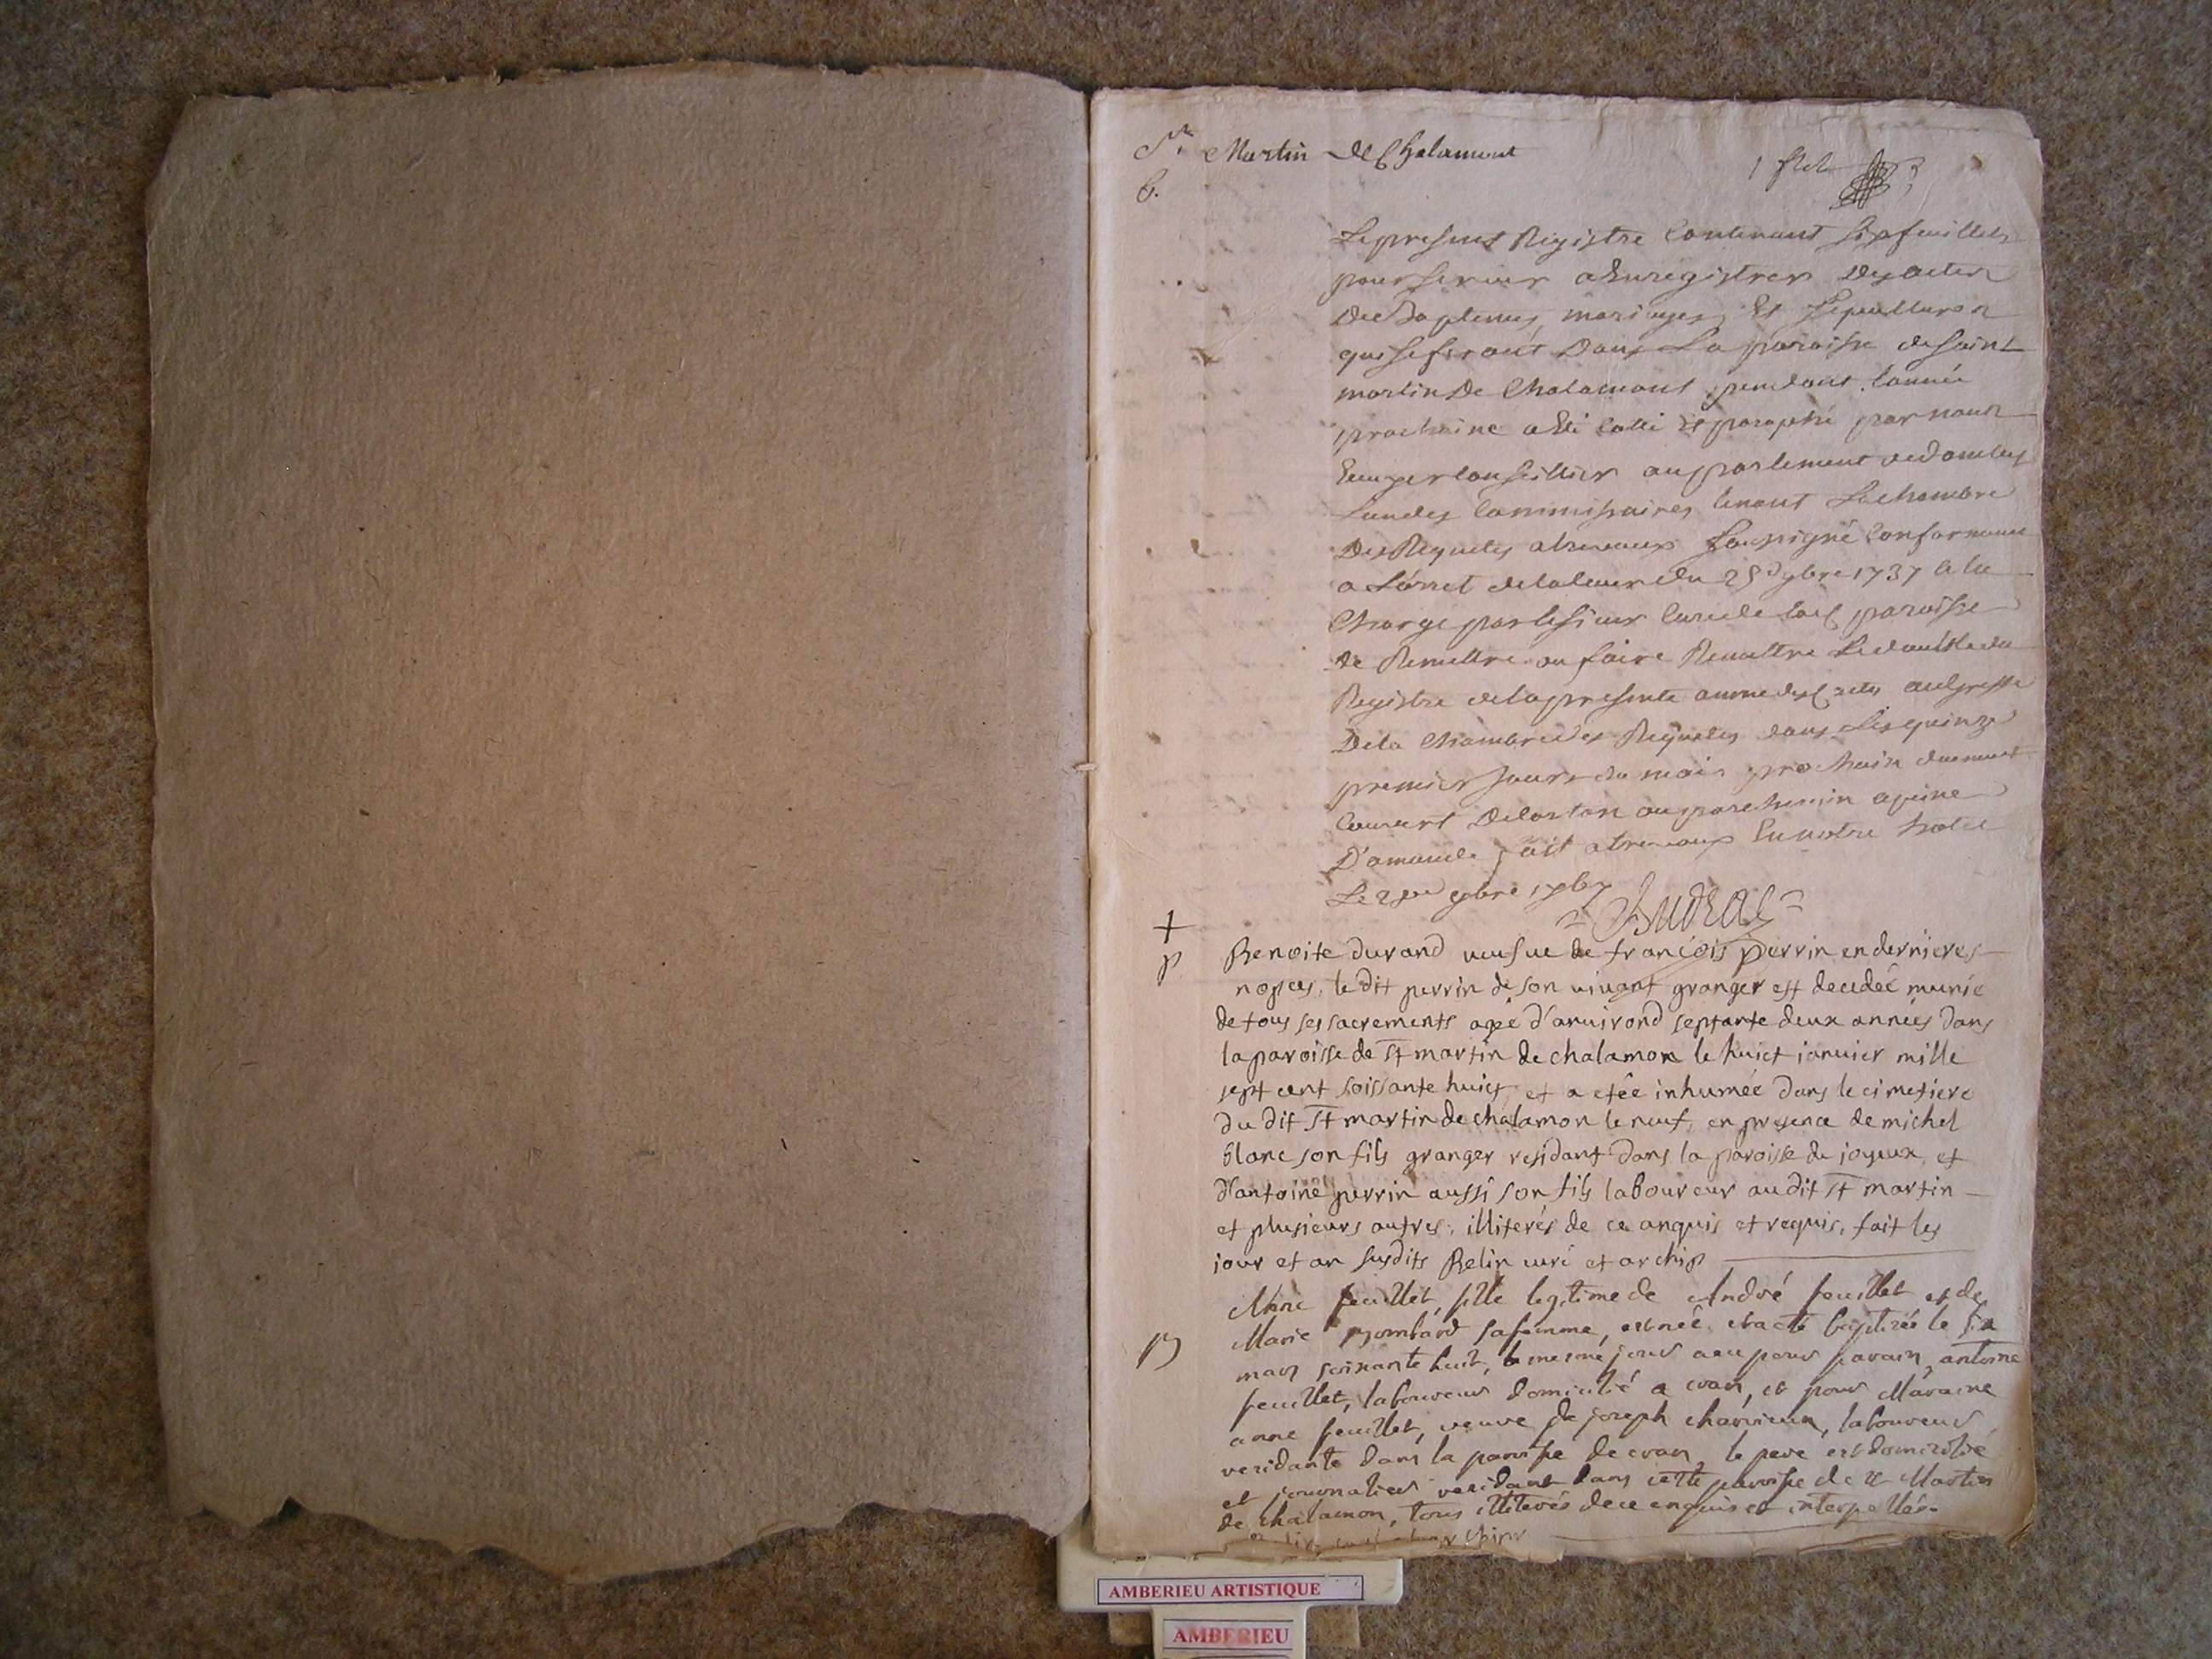 St. Martin de Chalamont
6.
Le present Registre Contenant six feuillets
pour servir a Enregistrer des actes
de Baptemes, mariages, Et sepultures
qui se feront Dans La paroisse de saint
martin De Chalamont pendant l'année
prochaine a Eté Cotté Et paraphé par nous
Ecuyer Conseillier au parlement de dombes
L'un des Commissaires tenant La chambre
Des Requetes a trevoux soussigné Conformement
a L'arret de la Cour du 1737 a la
Charge par le sieur Curé de la paroisse
de Remettre ou faire Remettre Le double du
Registre de la presente année au greffe
De la Chambre des Requetes dans Les quinze
premier Jours du mois prochain
Couvert De Carton ou parchemin a peine
D'amande fait a trevoux En notre hotel
Le 1767
+
p
Benoite durand veufue de françois perrin en dernieres
nopces, le dit perrin de son vivant granger est decedée munie
de tous ses sacrements agé d'anuirond septante deux années dans
la paroisse de St martin de chalamon le huict ianuier mille
sept cent soissante huict et a etée inhumée dans le cimetiere
du dit St martin de chalamon le neuf, en presence de michel
blanc son fils granger residant dans la paroisse de joyeux, et
d'antoine perrin aussi son fils laboureur au dit St martin
et plusieurs autres, illiterés de ce anquis et requis, fait les
jour et an susdits Belin curé et archip
Marie feuillet, fille legitime de André feuillet et de
Marie sa femme, est née et a eté baptisée le six
mars soixante huit, le mesme jour a eu pour parain antoine
feuillet, laboureur domicilié a cran, et pour Maraine
anne feuillet, veuve de joseph charvieux, laboureur
residante dans la paroisse de cran, le pere est domicilié
et journalier residant dans cette paroisse de St Martin
de chalamon, tous illiterés de ce enquis et interpellés
AMBERIEU ARTISTIQUE
AMBERIEU